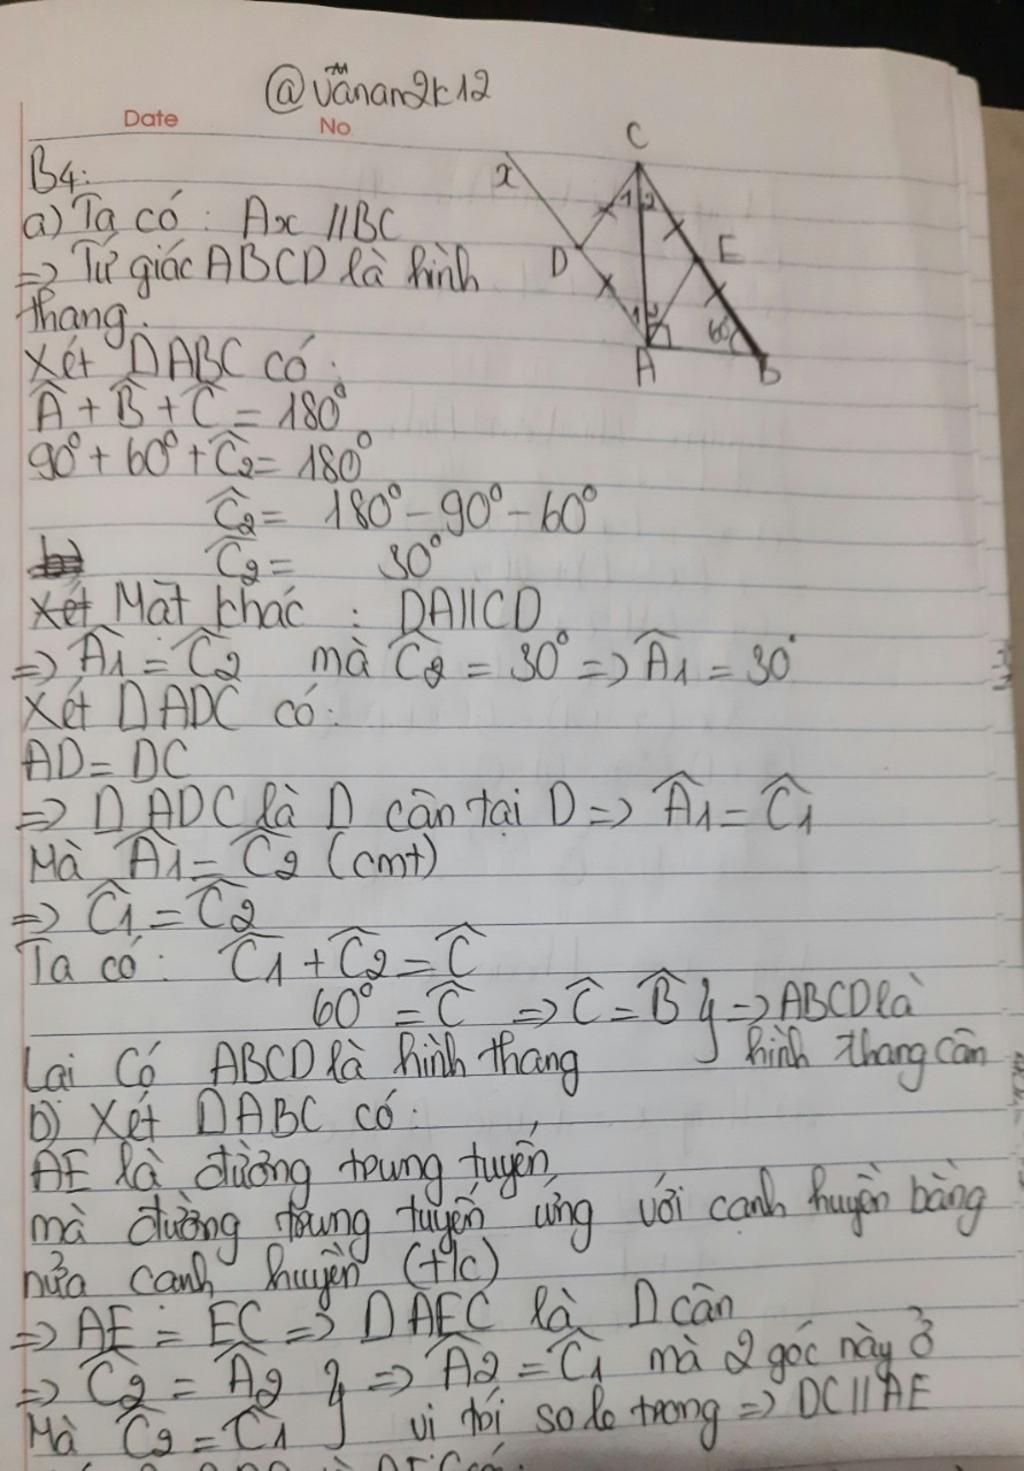 @vãnan2k12
Date No
B4:
a) Ta có : Ax //BC
=> Tứ giác ABCD là hình
thang.
Xét ΔABC có :
Â + B̂ + Ĉ = 180°
90° + 60° + Ĉ2 = 180°
Ĉ2 = 180° - 90° - 60°
Ĉ2 = 30°
Mặt khác : DA//CD
=> Â1 = Ĉ2 mà Ĉ2 = 30° => Â1 = 30°
Xét ΔADC có :
AD = DC
=> ΔADC là Δ cân tại D => Â1 = Ĉ1
Mà Â1 = Ĉ2 (cmt)
=> Ĉ1 = Ĉ2
Ta có : Ĉ1 + Ĉ2 = Ĉ
60° = Ĉ => Ĉ = B̂ } => ABCD là
Lại Có ABCD là hình thang hình thang cân
b) Xét ΔABC có :
AE là đường trung tuyến,
mà đường trung tuyến ứng với cạnh huyền bằng
nửa cạnh huyền (t/c)
=> AE = EC => ΔAEC là Δ cân
=> Ĉ2 = Â2 } => Â2 = Ĉ1 mà 2 góc này ở
Mà Ĉ2 = Ĉ1 vị trí so le trong => DC // AE
x
C
1 2
D
E
1 2
60°
A
B